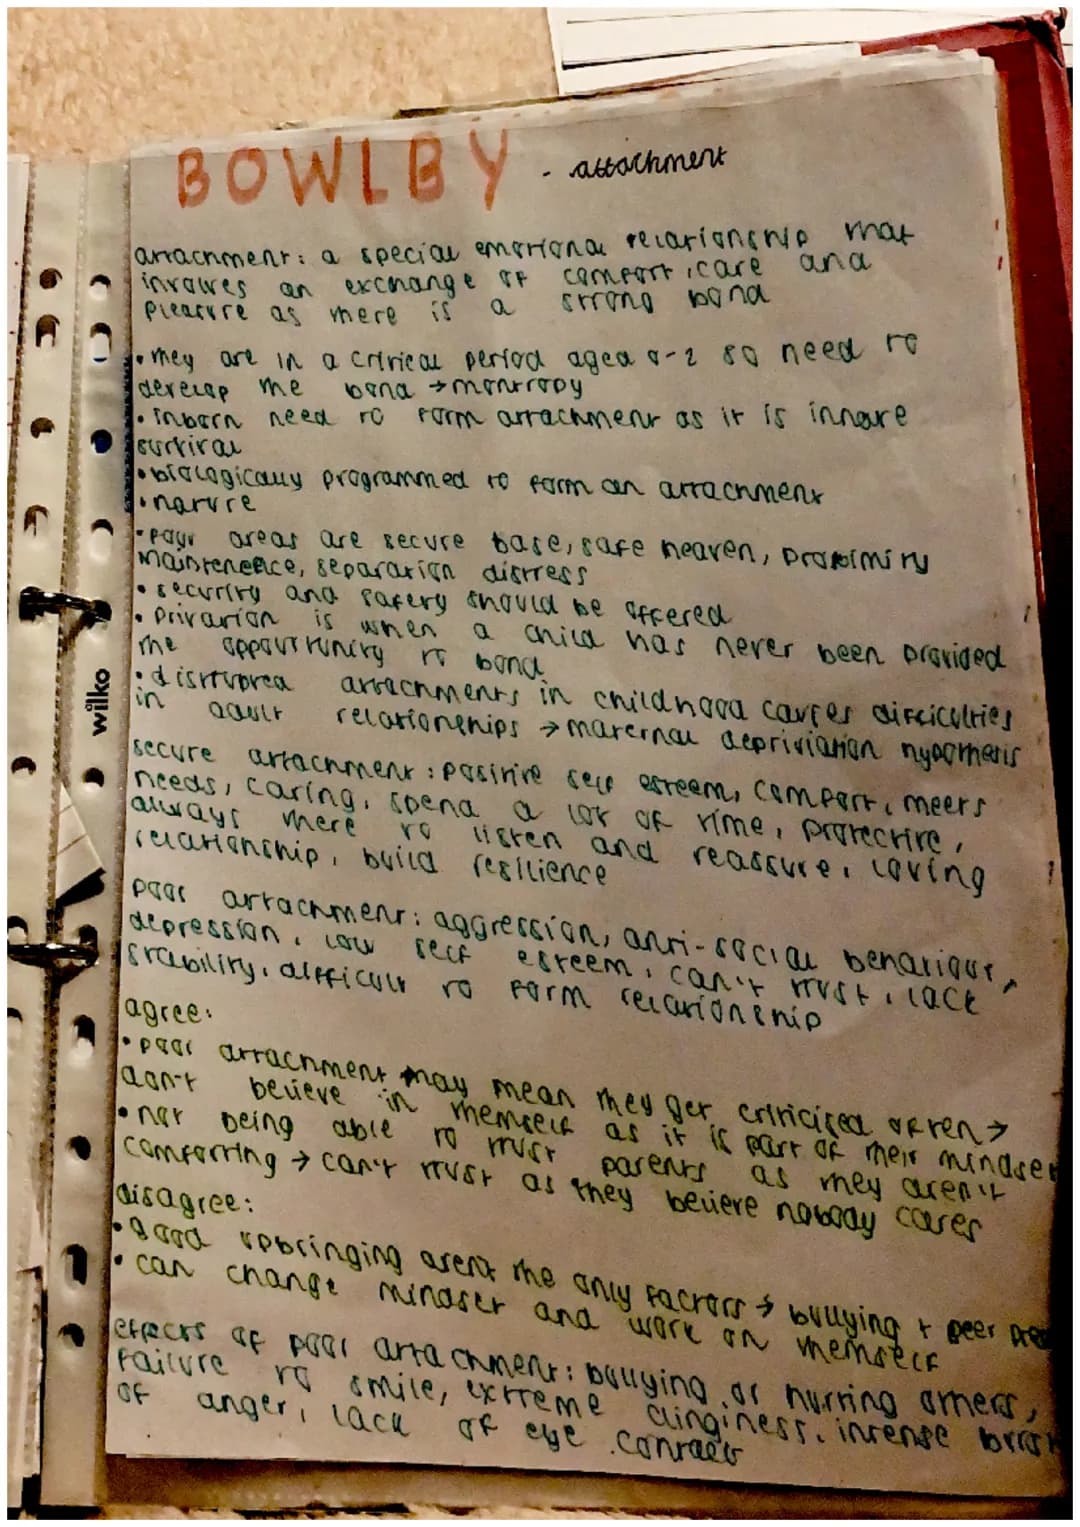 BOWLBY - attachment
attachment: a special emotional relationship that
involves an exchange of comfort, care and
pleasure as there is a strong bond
• they are in a critical period aged 0-2 so need to
develop the bond → montropy
• inborn need to form attachment as it is innate
survival
• biologically programmed to form an attachment
• nature
• four areas are secure base, safe heaven, proximity
maintenence, separation distress
• security and safety should be offered
• privation is when a child has never been provided
the oppourtunity to bond
• distrupted attachments in childhood causes difficulties
in adult relationships → maternal depriviation hypothesis
secure attachment: positive self esteem, comfort, meets
needs, caring, spend a lot of time, protective,
always there to listen and reassure, loving
relationship, build resilience
poor attachment: aggression, anti-social behaviour,
depression, low self esteem, can't trust, lack
stability, difficult to form relationship
agree:
• poor attachment may mean they get criticised often →
don't believe in themself as it is part of their mindset
• not being able to trust parents as they aren't
comforting → can't trust as they believe nobody cares
disagree:
• good upbringing arent the only factors → bullying + peer
• can change mindset and work on themself
effects of poor attachment: bullying or hurting others,
failure to smile, extreme clinginess, intense
of anger, lack of eye contact
wilko